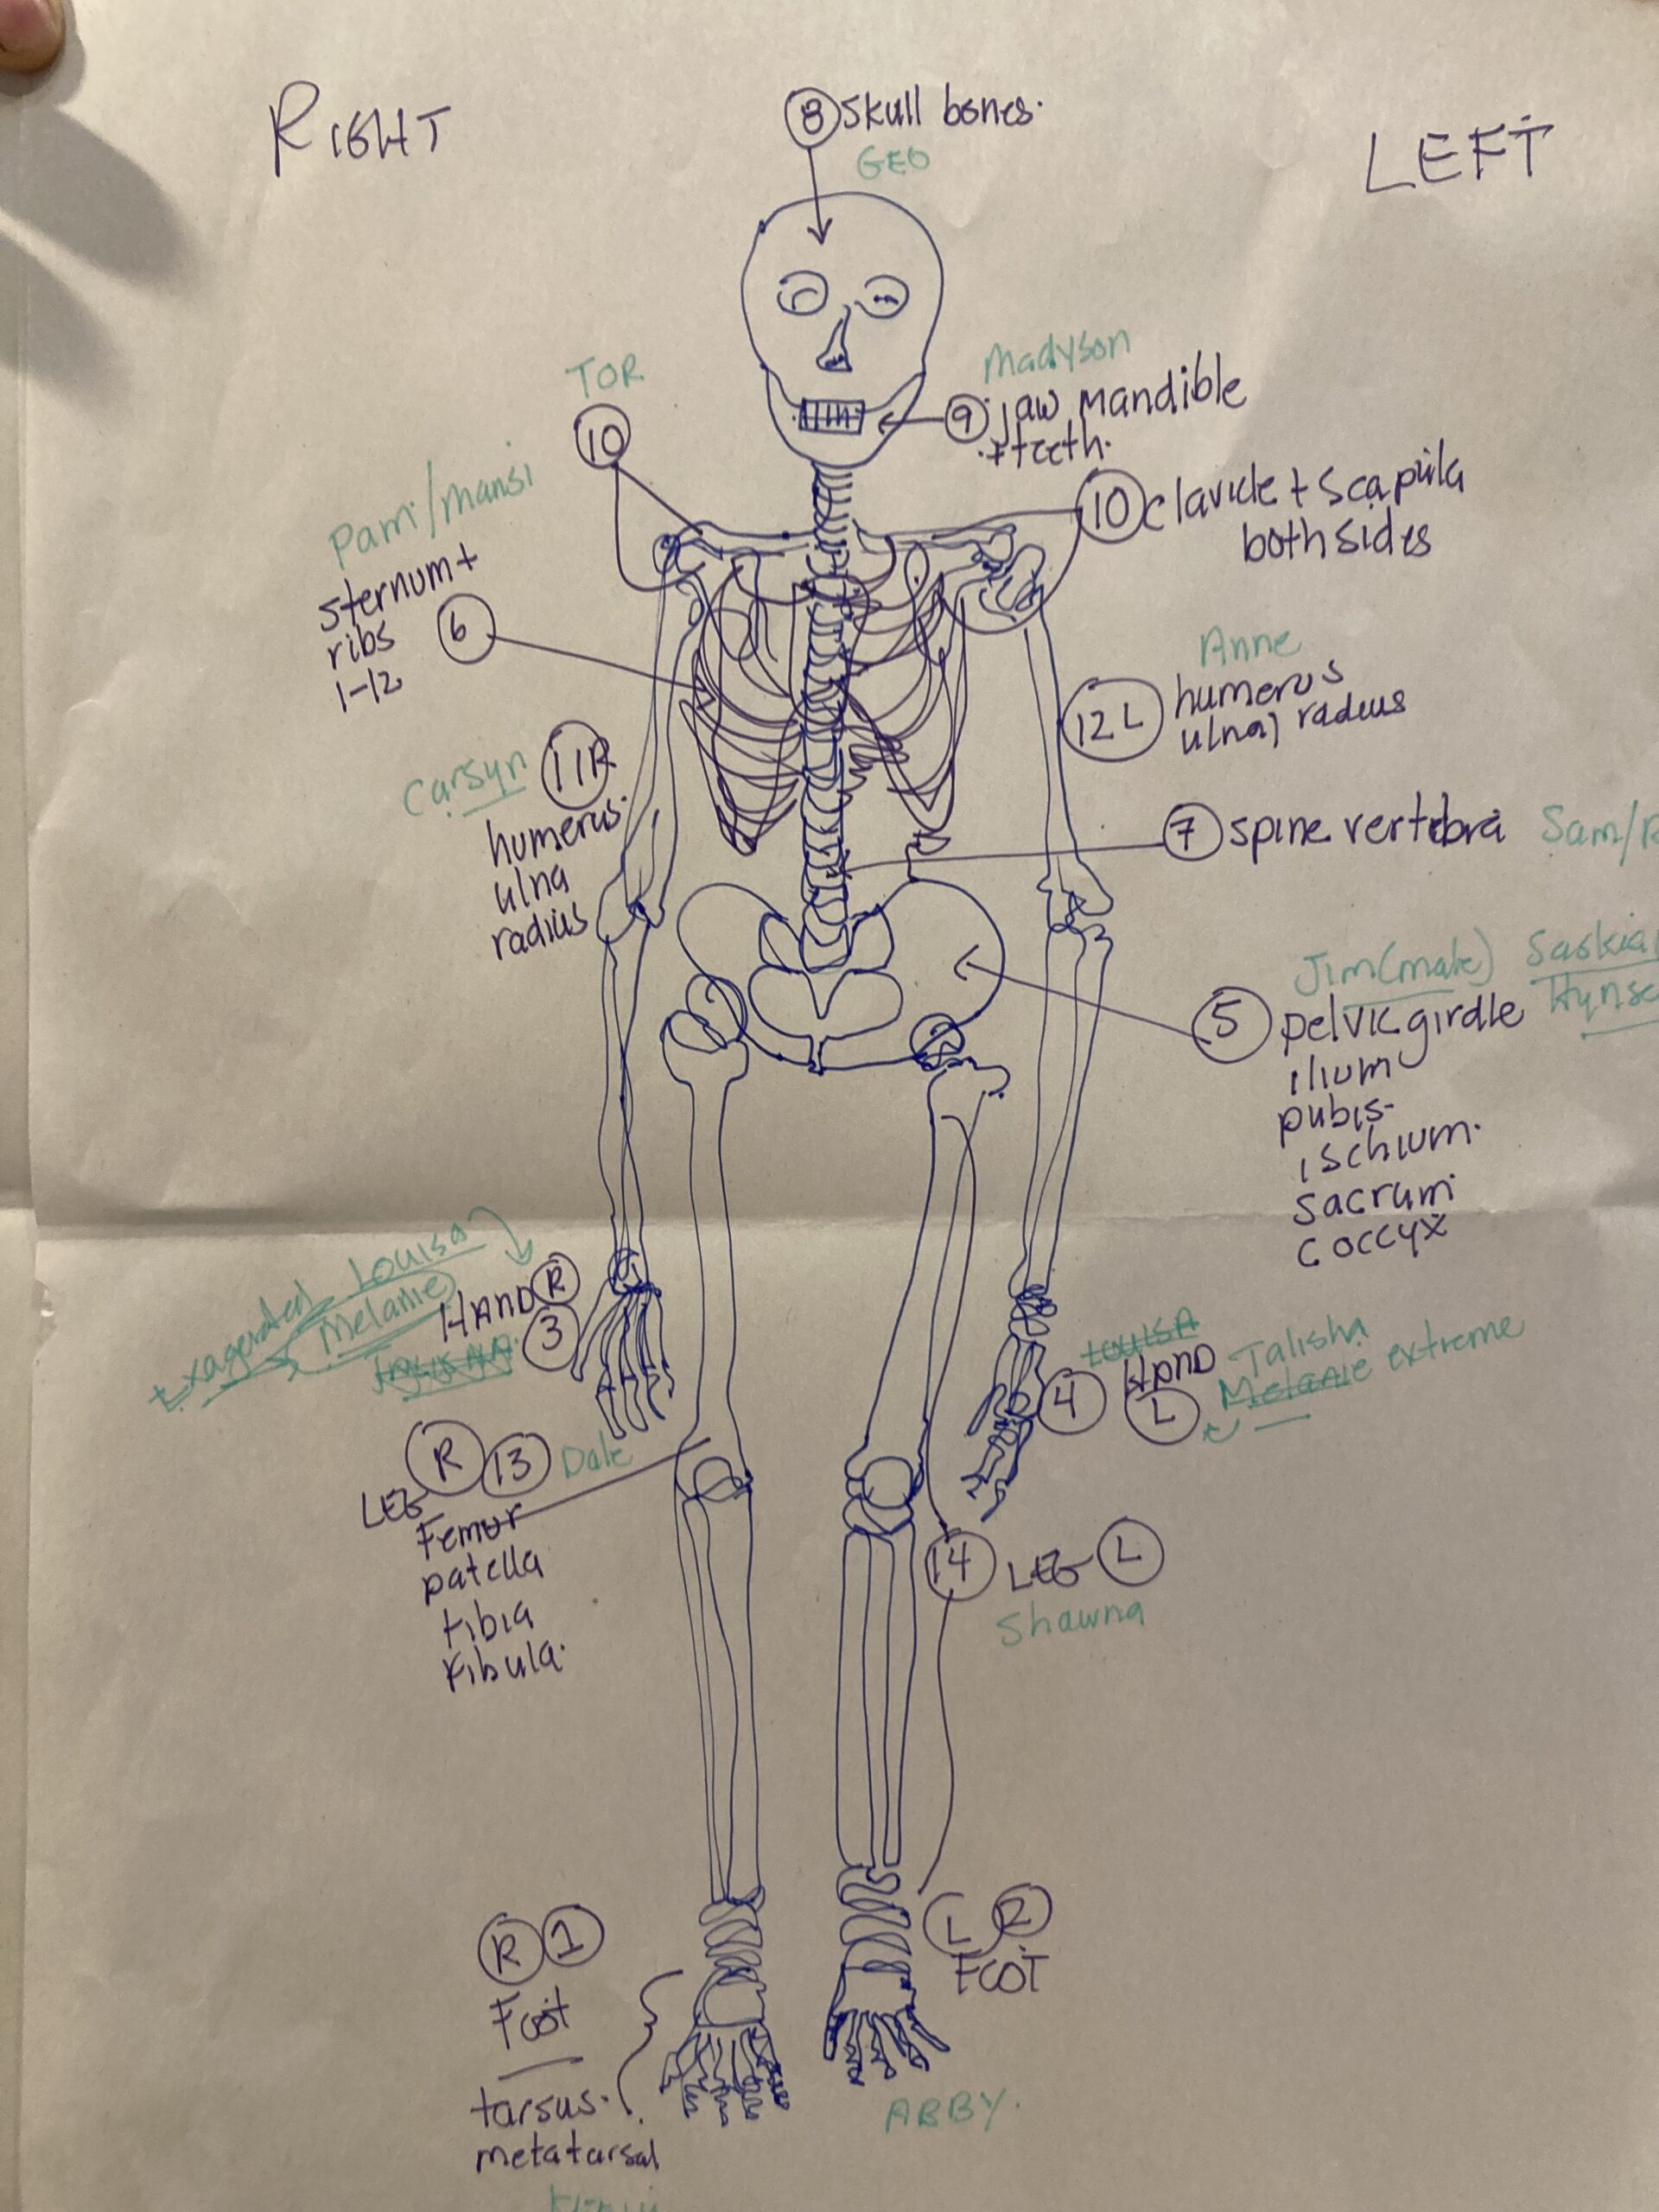 RIGHT
LEFT
8 skull bones.
GEO
Madyson
9 jaw mandible
+ teeth.
TOR
10
10 clavicle + scapula
both sides
Pam/mansi
sternum +
ribs
1-12
6
Anne
12 L humerus
ulna, radius
Carsyn 11R
humerus.
ulna
radius
7 spine vertebra Sam/
Jim (male) Saskia
5 pelvic girdle
ilium
pubis-
ischium.
sacrum
coccyx
Louisa
exagerated Melanie
HAND R
3
LOUISA
4 HAND Talisha
L Melanie extreme
R 13 Dale
LEG
Femur
patella
tibia
Fibula.
14 LEG L
Shawna
R 1
Foot
tarsus.
metatarsal
L 2
FOOT
ABBY.